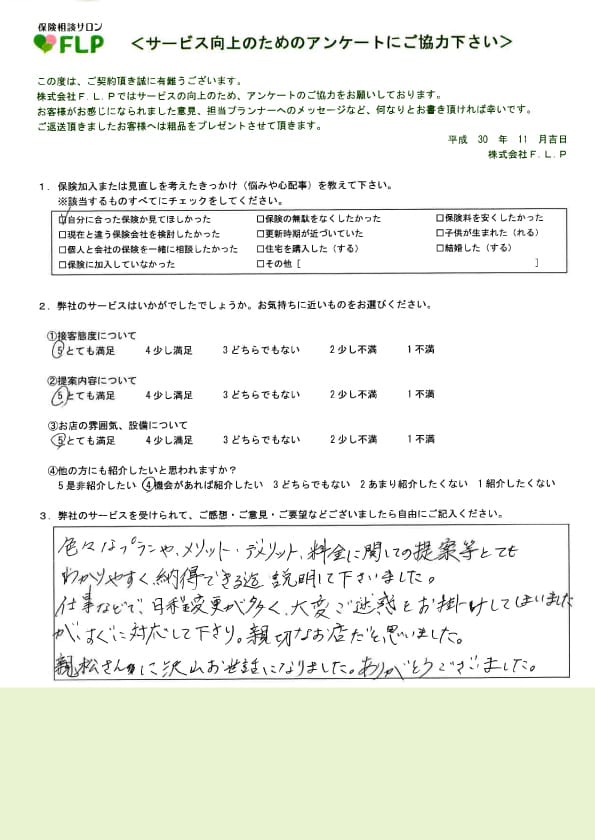 保険相談サロン
FLP
＜サービス向上のためのアンケートにご協力下さい＞
この度は、ご契約頂き誠に有難うございます。
株式会社Ｆ.Ｌ.Ｐではサービスの向上のため、アンケートのご協力をお願いしております。
お客様がお感じになられました意見、担当プランナーへのメッセージなど、何なりとお書き頂ければ幸いです。
ご返送頂きましたお客様へは粗品をプレゼントさせて頂きます。
平成 30 年 11 月吉日
株式会社Ｆ.Ｌ.Ｐ
１．保険加入または見直しを考えたきっかけ（悩みや心配事）を教えて下さい。
※該当するものすべてにチェックをしてください。
☑自分に合った保険か見てほしかった □保険の無駄をなくしたかった □保険料を安くしたかった
□現在と違う保険会社を検討したかった □更新時期が近づいていた □子供が生まれた（れる）
□個人と会社の保険を一緒に相談したかった □住宅を購入した（する） □結婚した（する）
□保険に加入していなかった □その他［ ］
２．弊社のサービスはいかがでしたでしょうか。お気持ちに近いものをお選びください。
①接客態度について
5とても満足 4少し満足 3どちらでもない 2少し不満 1不満
②提案内容について
5とても満足 4少し満足 3どちらでもない 2少し不満 1不満
③お店の雰囲気、設備について
5とても満足 4少し満足 3どちらでもない 2少し不満 1不満
④他の方にも紹介したいと思われますか？
5是非紹介したい ④機会があれば紹介したい 3どちらでもない 2あまり紹介したくない 1紹介したくない
３．弊社のサービスを受けられて、ご感想・ご意見・ご要望などございましたら自由にご記入ください。
色々なプランや、メリット・デメリット、料金に関しての提案等とても
わかりやすく、納得できる迄 説明して下さいました。
仕事などで、日程変更が多く、大変ご迷惑をお掛けしてしまいました
が、すぐに対応して下さり。親切なお店だと思いました。
親松さんに沢山お世話になりました。ありがとうございました。